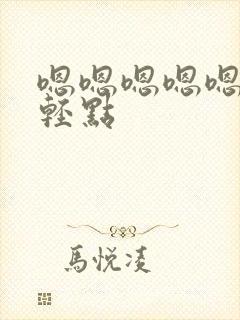 嗯嗯嗯嗯嗯
輕點
馬悅凌